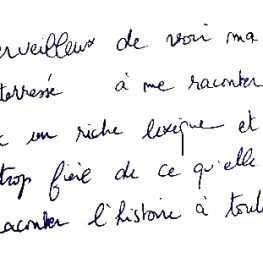 erveilleux de voir ma
terressé à me raconter
un riche lexique et
trop fière de ce qu'elle
raconter l'histoire à tout